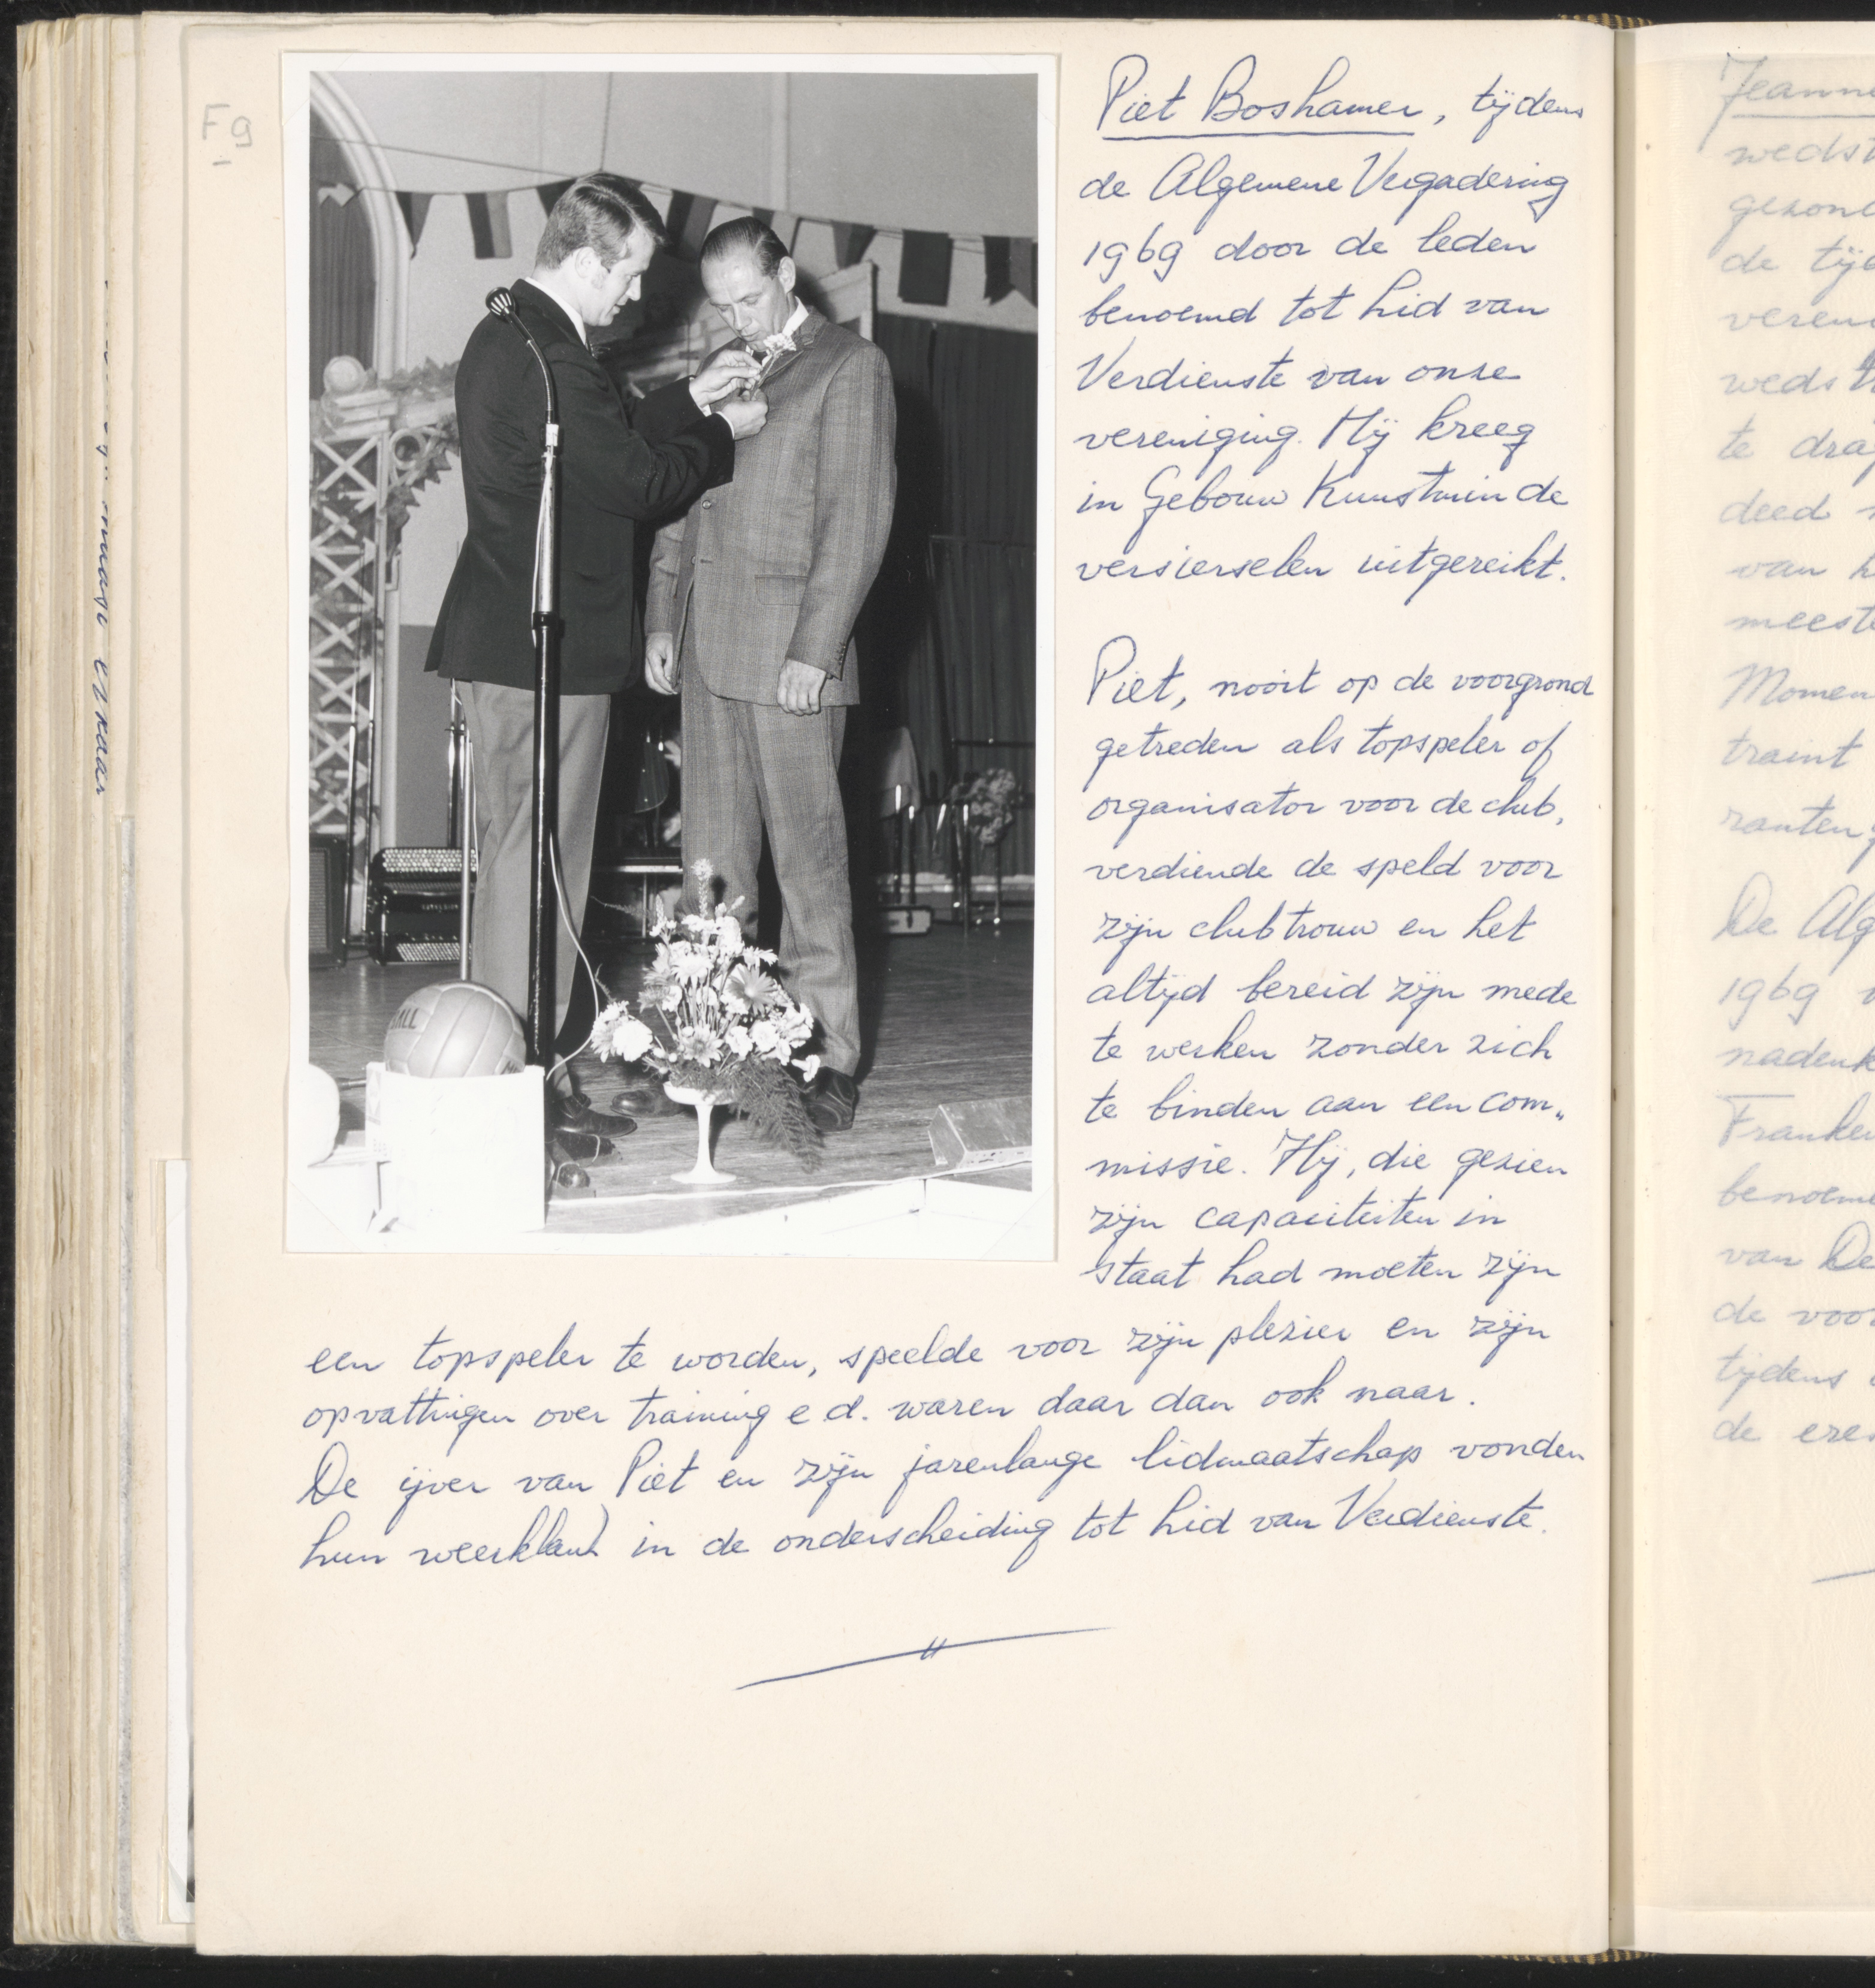 F9
Piet Boshamer, tijdens
de Algemene Vergadering
1969 door de leden
benoemd tot Lid van
Verdienste van onze
vereniging. Hij kreeg
in Gebouw Kunstmin de
versierselen uitgereikt.
Piet, nooit op de voorgrond
getreden als topspeler of
organisator voor de club,
verdiende de speld voor
zijn clubtrouw en het
altijd bereid zijn mede
te werken zonder zich
te binden aan een com„
missie. Hij, die gezien
zijn capaciteiten in
staat had moeten zijn
een topspeler te worden, speelde voor zijn plezier en zijn
opvattingen over training e d. waren daar dan ook naar.
De ijver van Piet en zijn jarenlange lidmaatschap vonden
hun weerklank in de onderscheiding tot Lid van Verdienste.
Jeanne
wedst
gezond
de tijd
veren
wedst
te drag
deed
van h
meeste
Momen
traint
ranten
De Alg
1969
nadenk
Franken
benoem
van De
de voor
tijdens
de eres